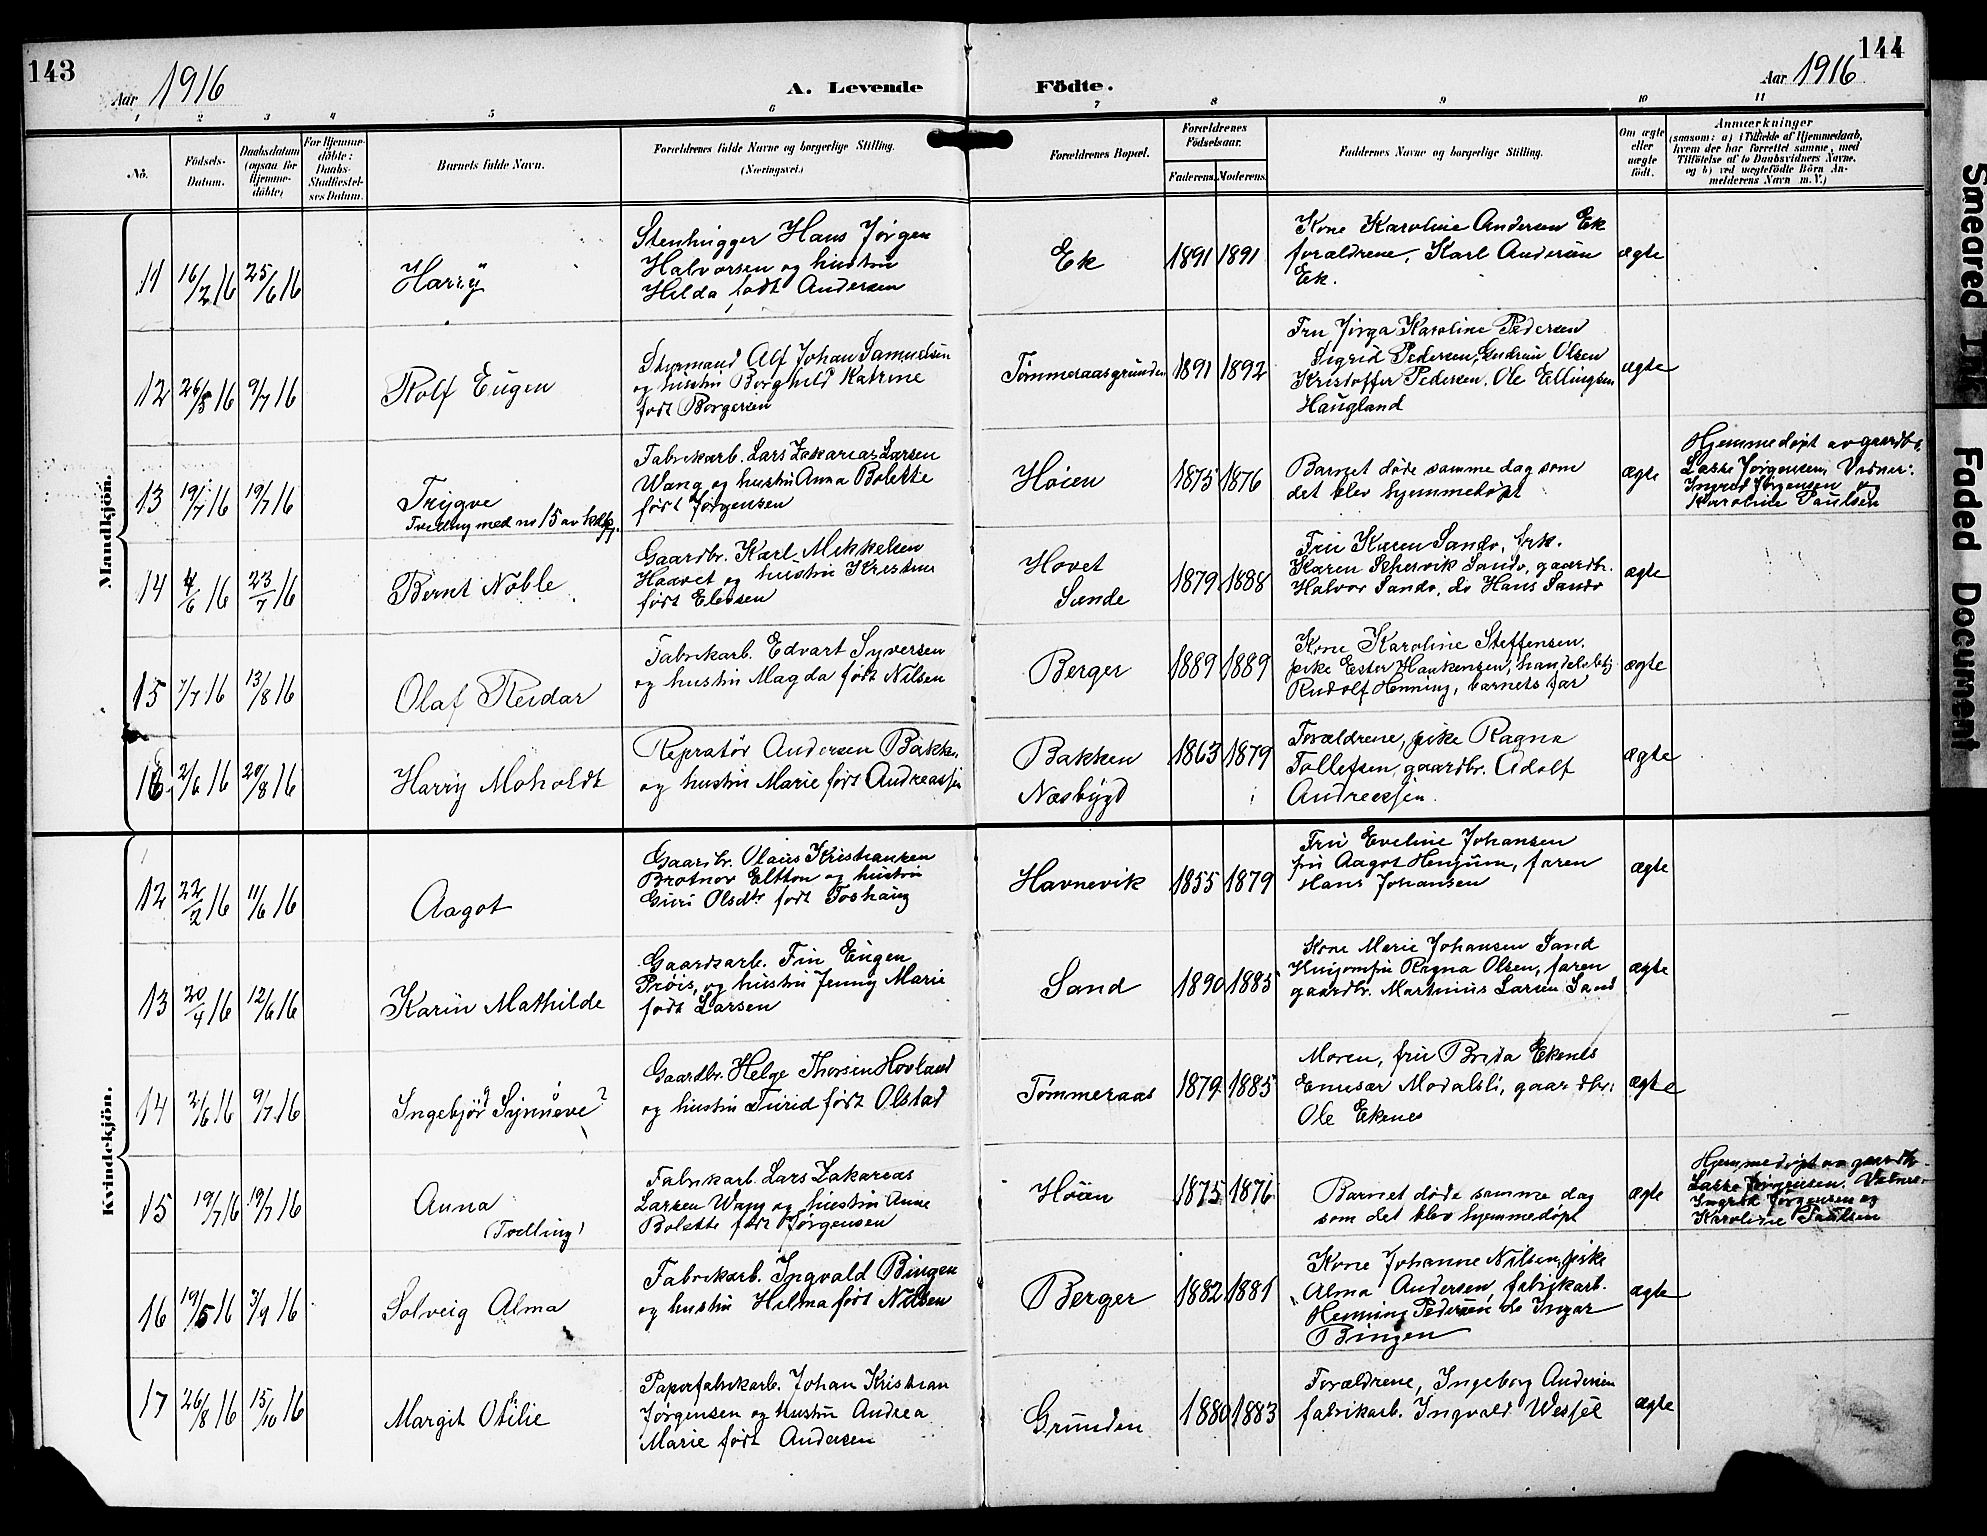 143
Aar 1916
A. Levende
Födte.
Aar 1916
144
1 2 3 4 5 6 7 8 9 10 11
No.
Födsels-Datum.
Daabsdatum (ogsaa for Hjemme-döbte)
For Hjemme-döbte: Daabs-Stadfæstel-ses Datum.
Barnets fulde Navn.
Forældrenes fulde Navne og borgerlige Stilling.
(Næringsvei.)
Forældrenes Bopæl.
Forældrenes Födselsaar.
Faderens. Moderens.
Faddernes Navne og borgerlige Stilling.
Om ægte eller uægte födt.
Anmærkninger
(saasom: a) i Tilfælde af Hjemmedaab,
hvem der har forrettet samme, med
Tilföielse af to Daabsvidners Navne,
og b) ved uægtefödte Börn An-
melderens Navn m. V.)
Mandkjön.
11 16/2 16 25/6 16 Harry
Stenhugger Hans Jørgen
Halvorsen og hustru
Hilda født Andersen
Ek 1891 1891
Kone Karoline Andersen Ek
forældrene, Karl Andersen
Ek.
ægte
12 26/5 16 9/7 16 Rolf Eugen
Styrmand Alf Johan Samuelsen
og hustru Borghild Katrine
født Borgersen
Tømmeraasgrunden 1891 1892
Fru Jørga Karoline Pedersen
Sigrid Pedersen, Gudrun Olsen
Kristoffer Pedersen, Ole Ellingsen
Haugland
ægte
13 19/7 16 19/7 16 Trygve
Tvilling med no 15 av kvkj.
Fabrikarb. Lars Zakarias Larsen
Wang og hustru Anna Bolette
født Jørgensen
Høien 1875 1876
Barnet døde samme dag som
det blev hjemmedøpt
ægte
Hjemmedøpt av gaardbr.
Lasse Jørgensen, Vidner:
Ingrid Jørgensen og
Karoline Paulsen
14 4/6 16 23/7 16 Bernt Nøble
Gaardbr. Karl Mikkelsen
Haavet og hustru Kristine
født Ellefsen
Hovet
Sande
1879 1888
Fru Karen Sando, frk.
Karen Schervik Sando, gaardbr.
Halvor Sando, do Hans Sando
ægte
15 7/7 16 13/8 16 Olaf Reidar
Fabrikarb. Edvart Syversen
og hustru Magda født Nilsen
Berger 1889 1889
Kone Karoline Steffensen,
pike Ester Haakensen, handelsbtj.
Rudolf Henning, barnets far
ægte
16 2/6 16 20/8 16 Harry Moholdt
Repratør Andersen Bakke
og hustru Marie født Andreassen
Bakken
Næsbygd
1863 1879
Forældrene, pike Ragna
Tollefsen, gaardbr. Adolf
Andreassen.
ægte
Kvindekjön.
12 22/2 16 11/6 16 Aagot
Gaardbr. Olaus Kristiansen
Brotnov Eltton og hustru
Guri Olsdtr født Foshaug
Havnevik 1855 1879
Fru Eveline Johansen
fru Aagot Henjum, faren
Hans Johansen
ægte
13 20/4 16 12/6 16 Karin Mathilde
Gaardsarb. Fin Eugen
Prøis, og hustru Jenny Marie
født Larsen
Sand 1890 1885
Kone Marie Johansen Sand
Husjomfru Ragna Olsen, faren
gaardbr. Martinius Larsen Sand
ægte
14 2/6 16 9/7 16 Ingebjørd Synnøve?
Gaardbr. Helge Thorsen Hovland
og hustru Turid født Olstad
Tømmeraas 1879 1885
Moren, fru Brida Ekenes
Emusar Modalsli, gaardbr.
Ole Ekenes
ægte
15 19/7 16 19/7 16 Anna
(Tvilling)
Fabrikarb. Lars Zakarias
Larsen Wang og hustru Anne
Bolette født Jørgensen
Høien 1875 1876
Barnet døde samme dag
som det blev hjemmedøpt
ægte
Hjemmedøpt av gaardbr.
Lasse Jørgensen. Vidner:
Ingrid Jørgensen og
Karoline Paulsen
16 19/5 16 3/9 16 Solveig Alma
Fabrikarb. Ingvald Bingen
og hustru Hilma født Nilsen
Berger 1882 1881
Kone Johanne Nilsen, pike
Alma Andersen, fabrikarb.
Henning Pedersen do Ingar
Bingen
ægte
17 26/8 16 15/10 16 Margit Otilie
Papirfabrikarb. Johan Kristian
Jørgensen og hustru Andrea
Marie født Andersen
Grunden 1880 1883
Forældrene, Ingeborg Andersen
fabrikarb. Ingvald Wessel
ægte
Smeared Ink
Faded Document